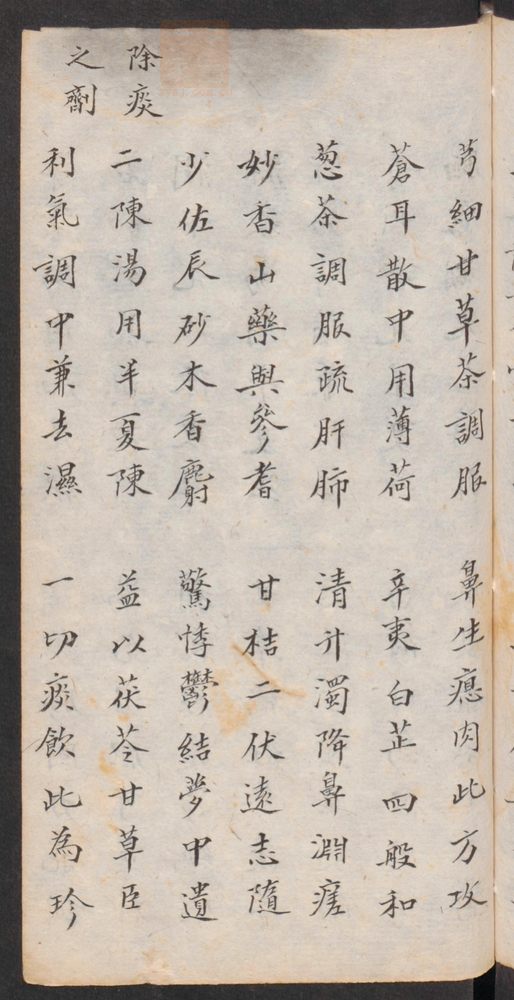 芎細甘草茶調服 鼻生瘜肉此方攻
蒼耳散中用薄荷 辛夷白芷四般和
葱茶調服疏肝肺 清升濁降鼻淵瘥
妙香山藥與參耆 甘桔二伏遠志隨
少佐辰砂木香麝 驚悸鬱結夢中遺
除痰
之劑
二陳湯用半夏陳 益以茯苓甘草臣
利氣調中兼去濕 一切痰飲此為珍